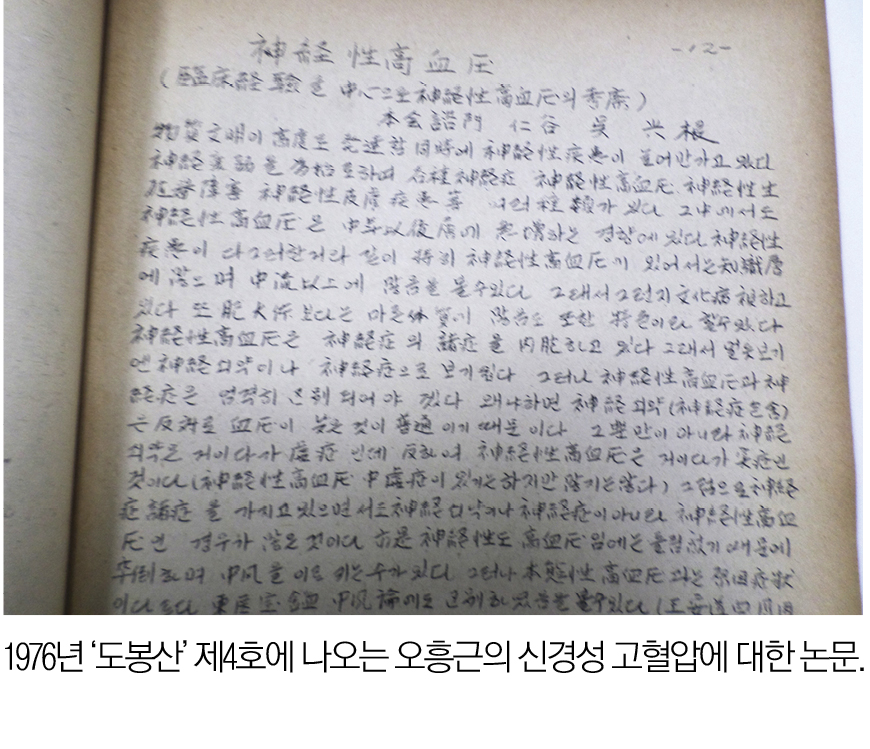 神経性高血圧
-12-
(臨床経驗을 中心으로 神経性高血圧의 考案)
本会諮門 仁谷 吳 兴根
物質文明이 高度로 発達함 同時에 神経性疾患이 늘어만가고 있다
神経衰弱을 為始로하여 各種神経症 神経性高血圧 神経性生
障害 神経性皮膚疾患等 여러種類가 있다 그中에서도
神経性高血圧은 中年以後層에 急増하는 경향에 있다 神経性
疾患이 다그러한거와 같이 特히 神経性高血圧이 있어서는 知識層
에 많으며 中流以上에 많음을 볼수있다 그래서 그런지 文化病視하고
있다 또 肥大体보다는 마른体質이 많음도 또한 特色이라 할수있다
神経性高血圧은 神経症의 諸症을 内胞하고 있다 그래서 얼핏보기
엔 神経쇠약이나 神経症으로 보기쉽다 그러나 神経性高血圧과 神
経症은 엄격히 区別되어야 겠다 왜냐하면 神経쇠약(神経症包含)
은 反対로 血圧이 낮은것이 普通이기 때문이다 그뿐만이 아니라 神経
쇠약은 거이다가 虛症인데 反하여 神経性高血圧은 거이다가 実症인
것이다(神経性高血圧中 虛症이 있기는하지만 많기는않다) 그럼으로 神経
症諸症을 가지고있으면서도 神経쇠약이나 神経症이 아니라 神経性高血
圧인 경우가 많은것이다 亦是 神経性도 高血圧임에는 틀림없기때문에
卒倒하며 中风을 이르키는수가있다 그러나 本態性高血圧과는 原因症狀
이다르다 東医宝鑑 中风論에도 区別하였음을 볼수있다(
1976년 ‘도봉산’ 제4호에 나오는 오흥근의 신경성 고혈압에 대한 논문.